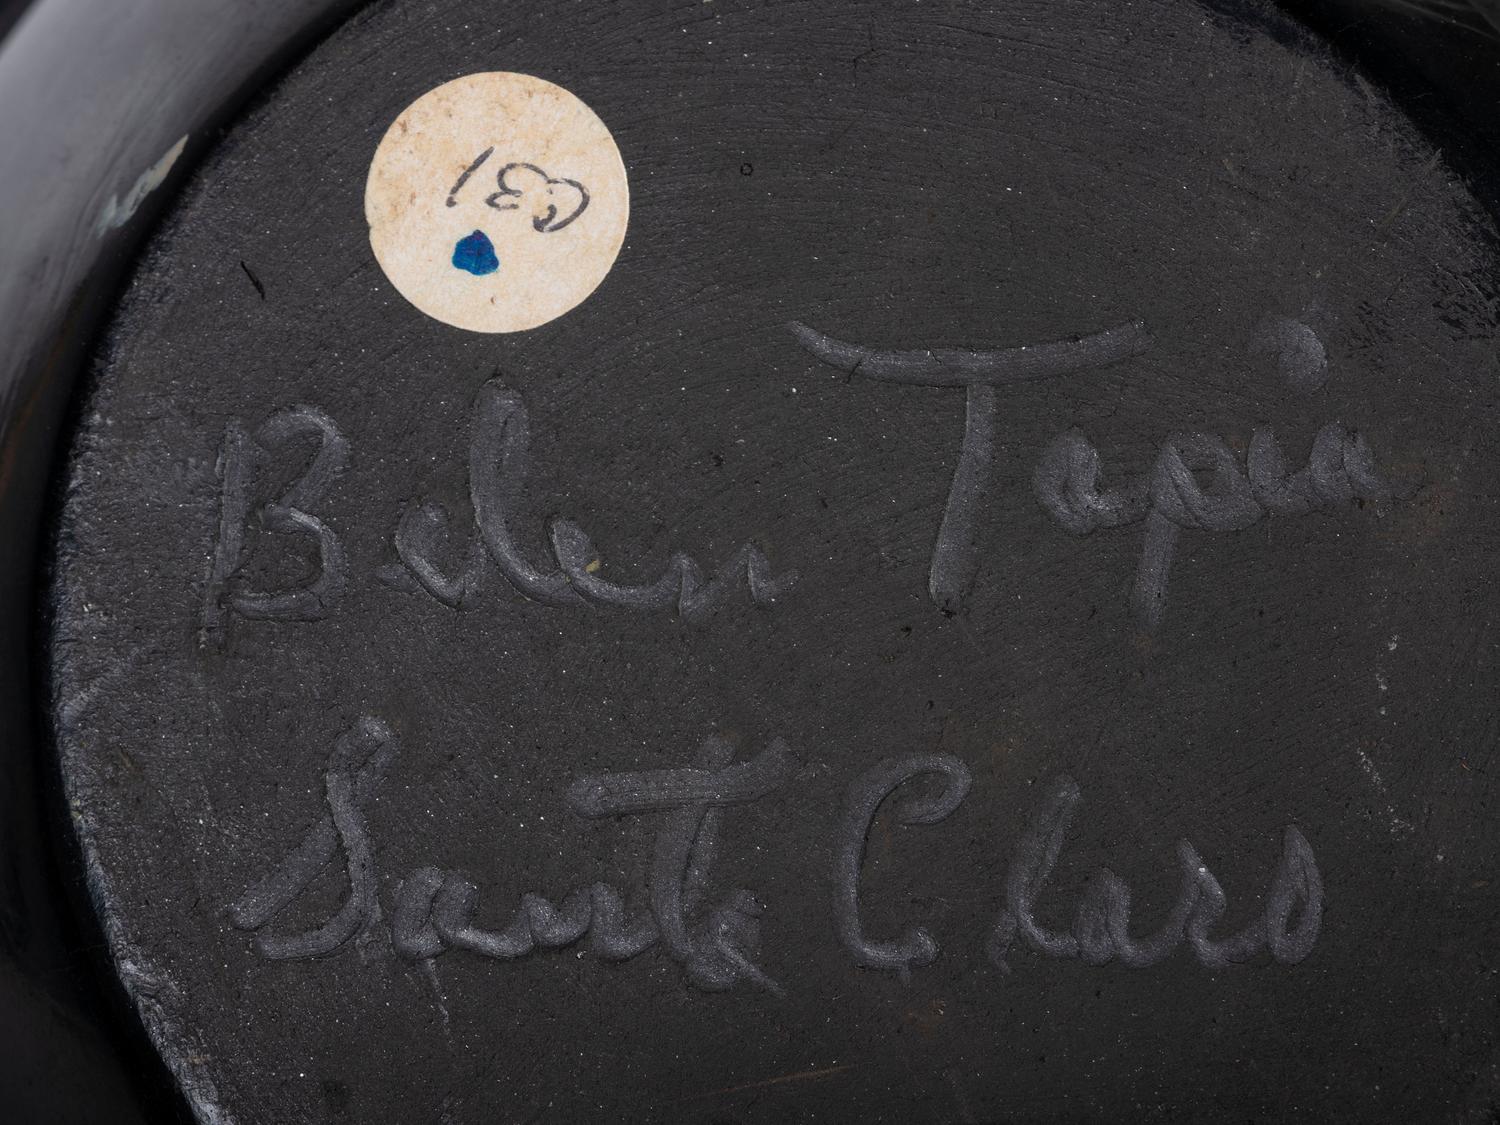 C31
Belen Tapia
Santa Clara